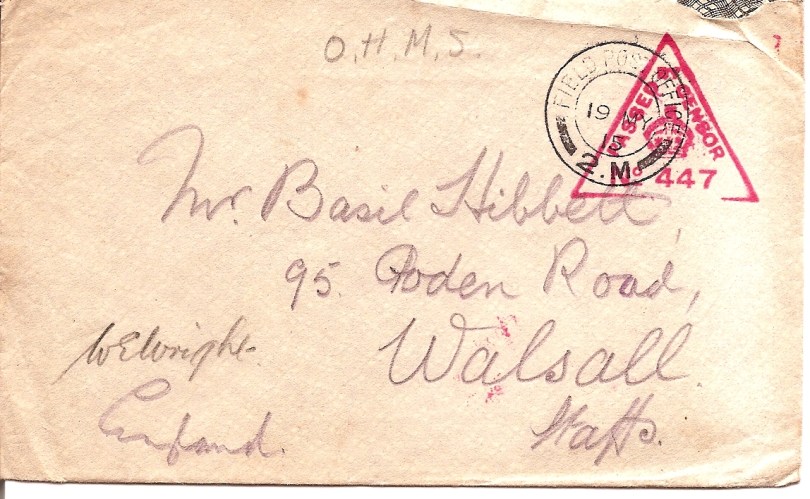 O.H.M.S.
FIELD POST OFFICE
19 MY
15
2.M
PASSED BY CENSOR
No 447
Mr. Basil Hibbett,
95. Foden Road,
Walsall.
Staffs.
WEWright.
England.